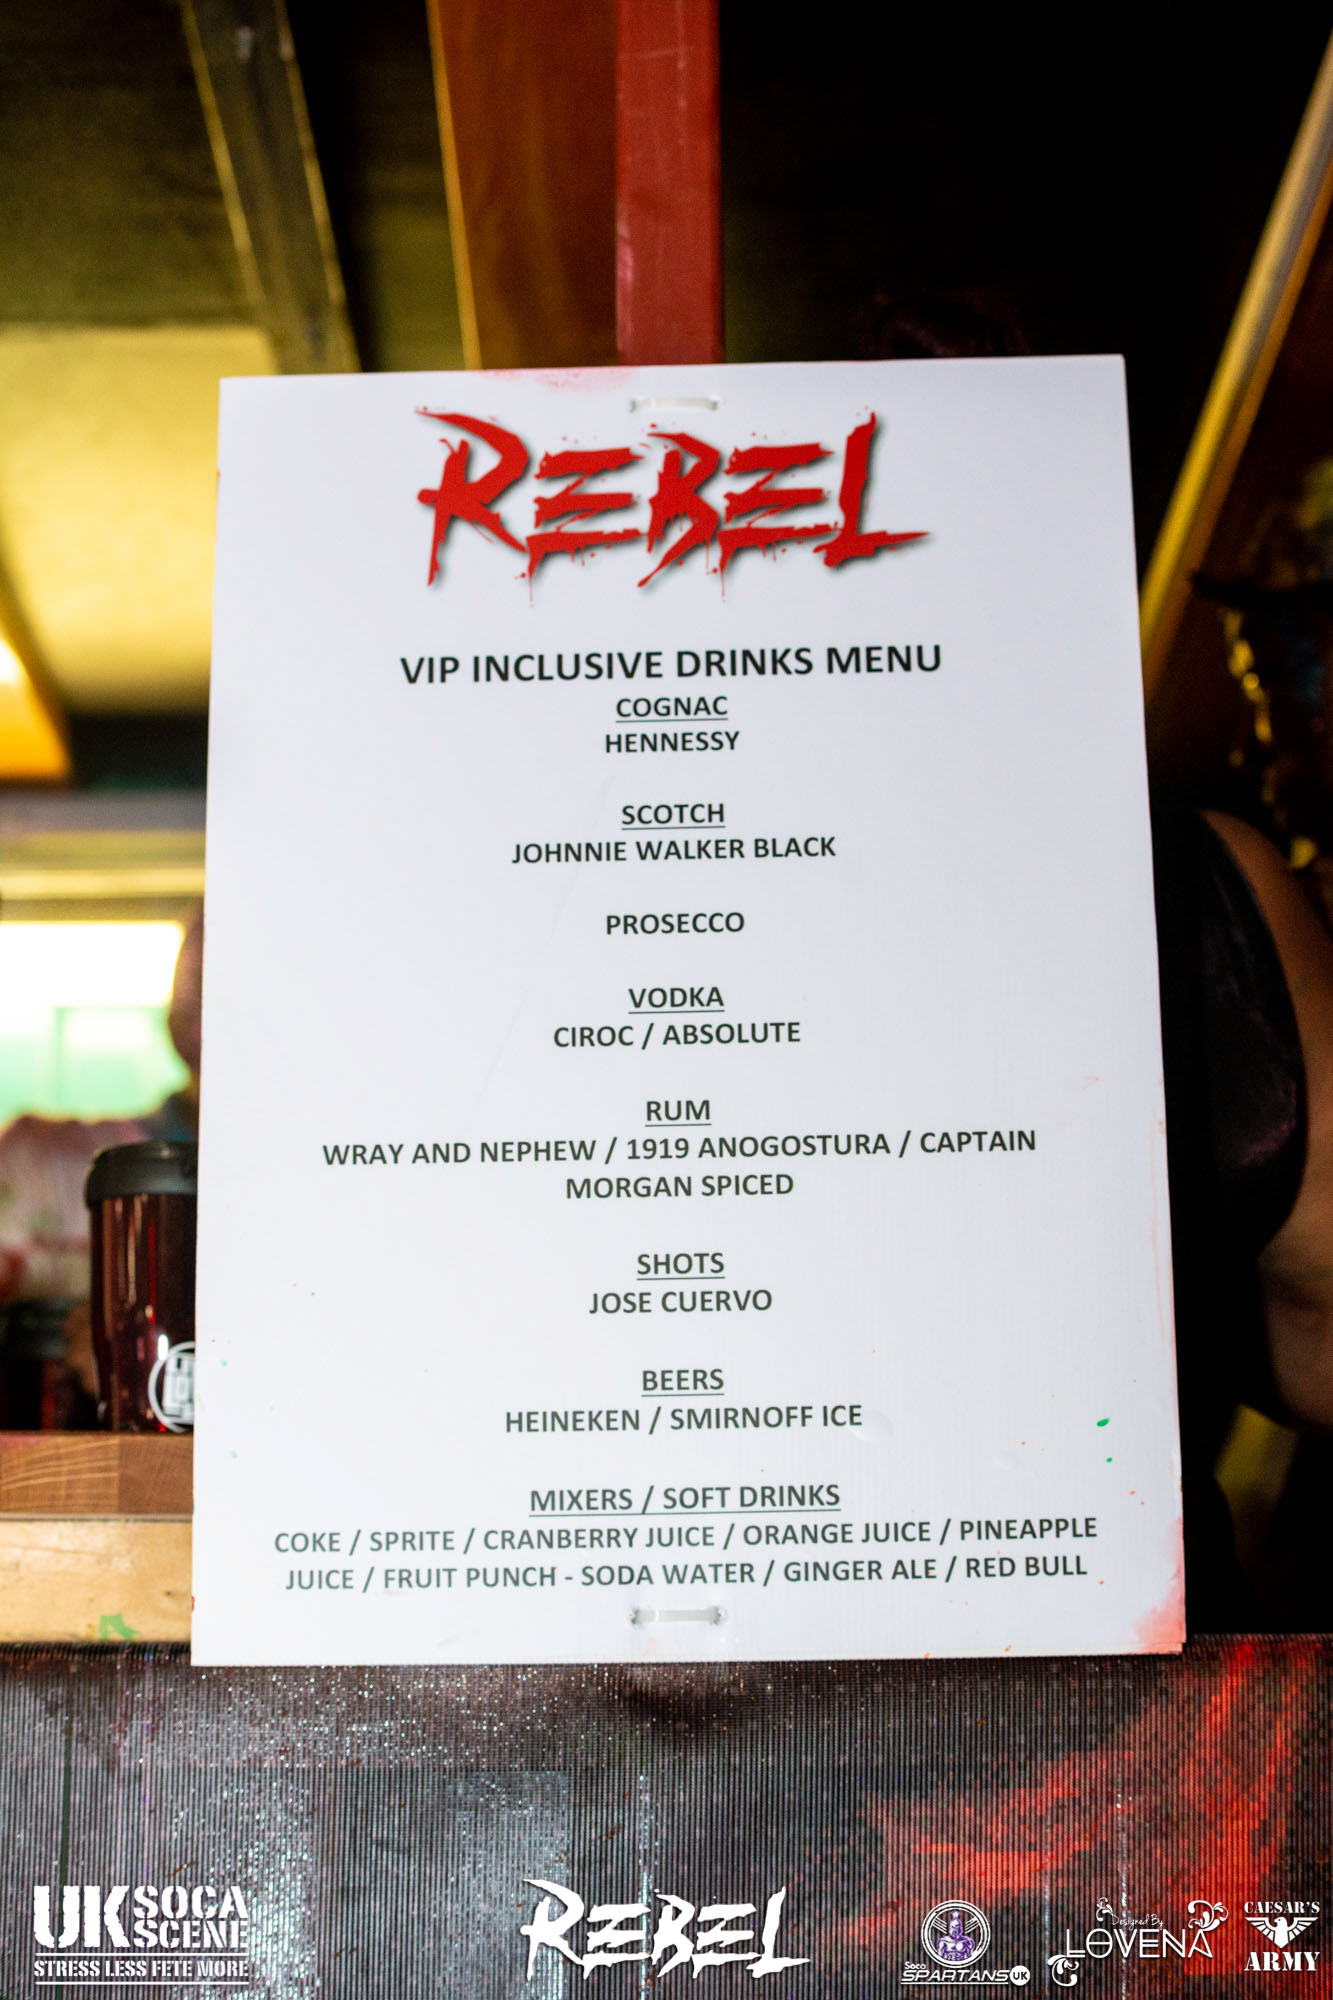 REBEL
VIP INCLUSIVE DRINKS MENU
COGNAC
HENNESSY
SCOTCH
JOHNNIE WALKER BLACK
PROSECCO
VODKA
CIROC / ABSOLUTE
RUM
WRAY AND NEPHEW / 1919 ANOGOSTURA / CAPTAIN
MORGAN SPICED
SHOTS
JOSE CUERVO
BEERS
HEINEKEN / SMIRNOFF ICE
MIXERS / SOFT DRINKS
COKE / SPRITE / CRANBERRY JUICE / ORANGE JUICE / PINEAPPLE
JUICE / FRUIT PUNCH - SODA WATER / GINGER ALE / RED BULL
UK SOCA
SCENE
STRESS LESS FETE MORE
REBEL
Soca
SPARTANS UK
Designed By
LOVENA
CAESAR'S
ARMY